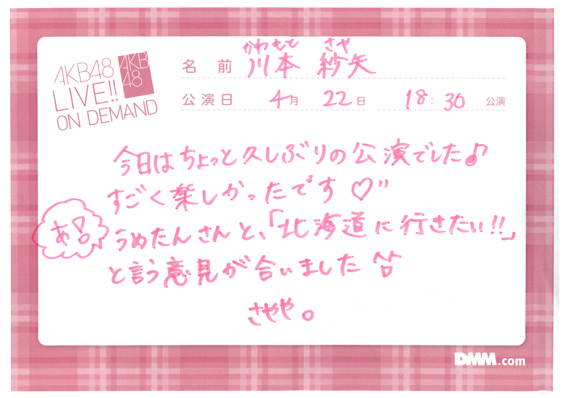 AKB48
LIVE!!
ON DEMAND
AKB
48
かわもと さや
名前 川本 紗矢
公演日 4月 22日 18:30 公演
今日はちょっと久しぶりの公演でした♪
すごく楽しかったです♡"
あ!
うめたんさんと、「北海道に行きたい!!」
と言う意見が合いました 笑
さやや。
DMM.com